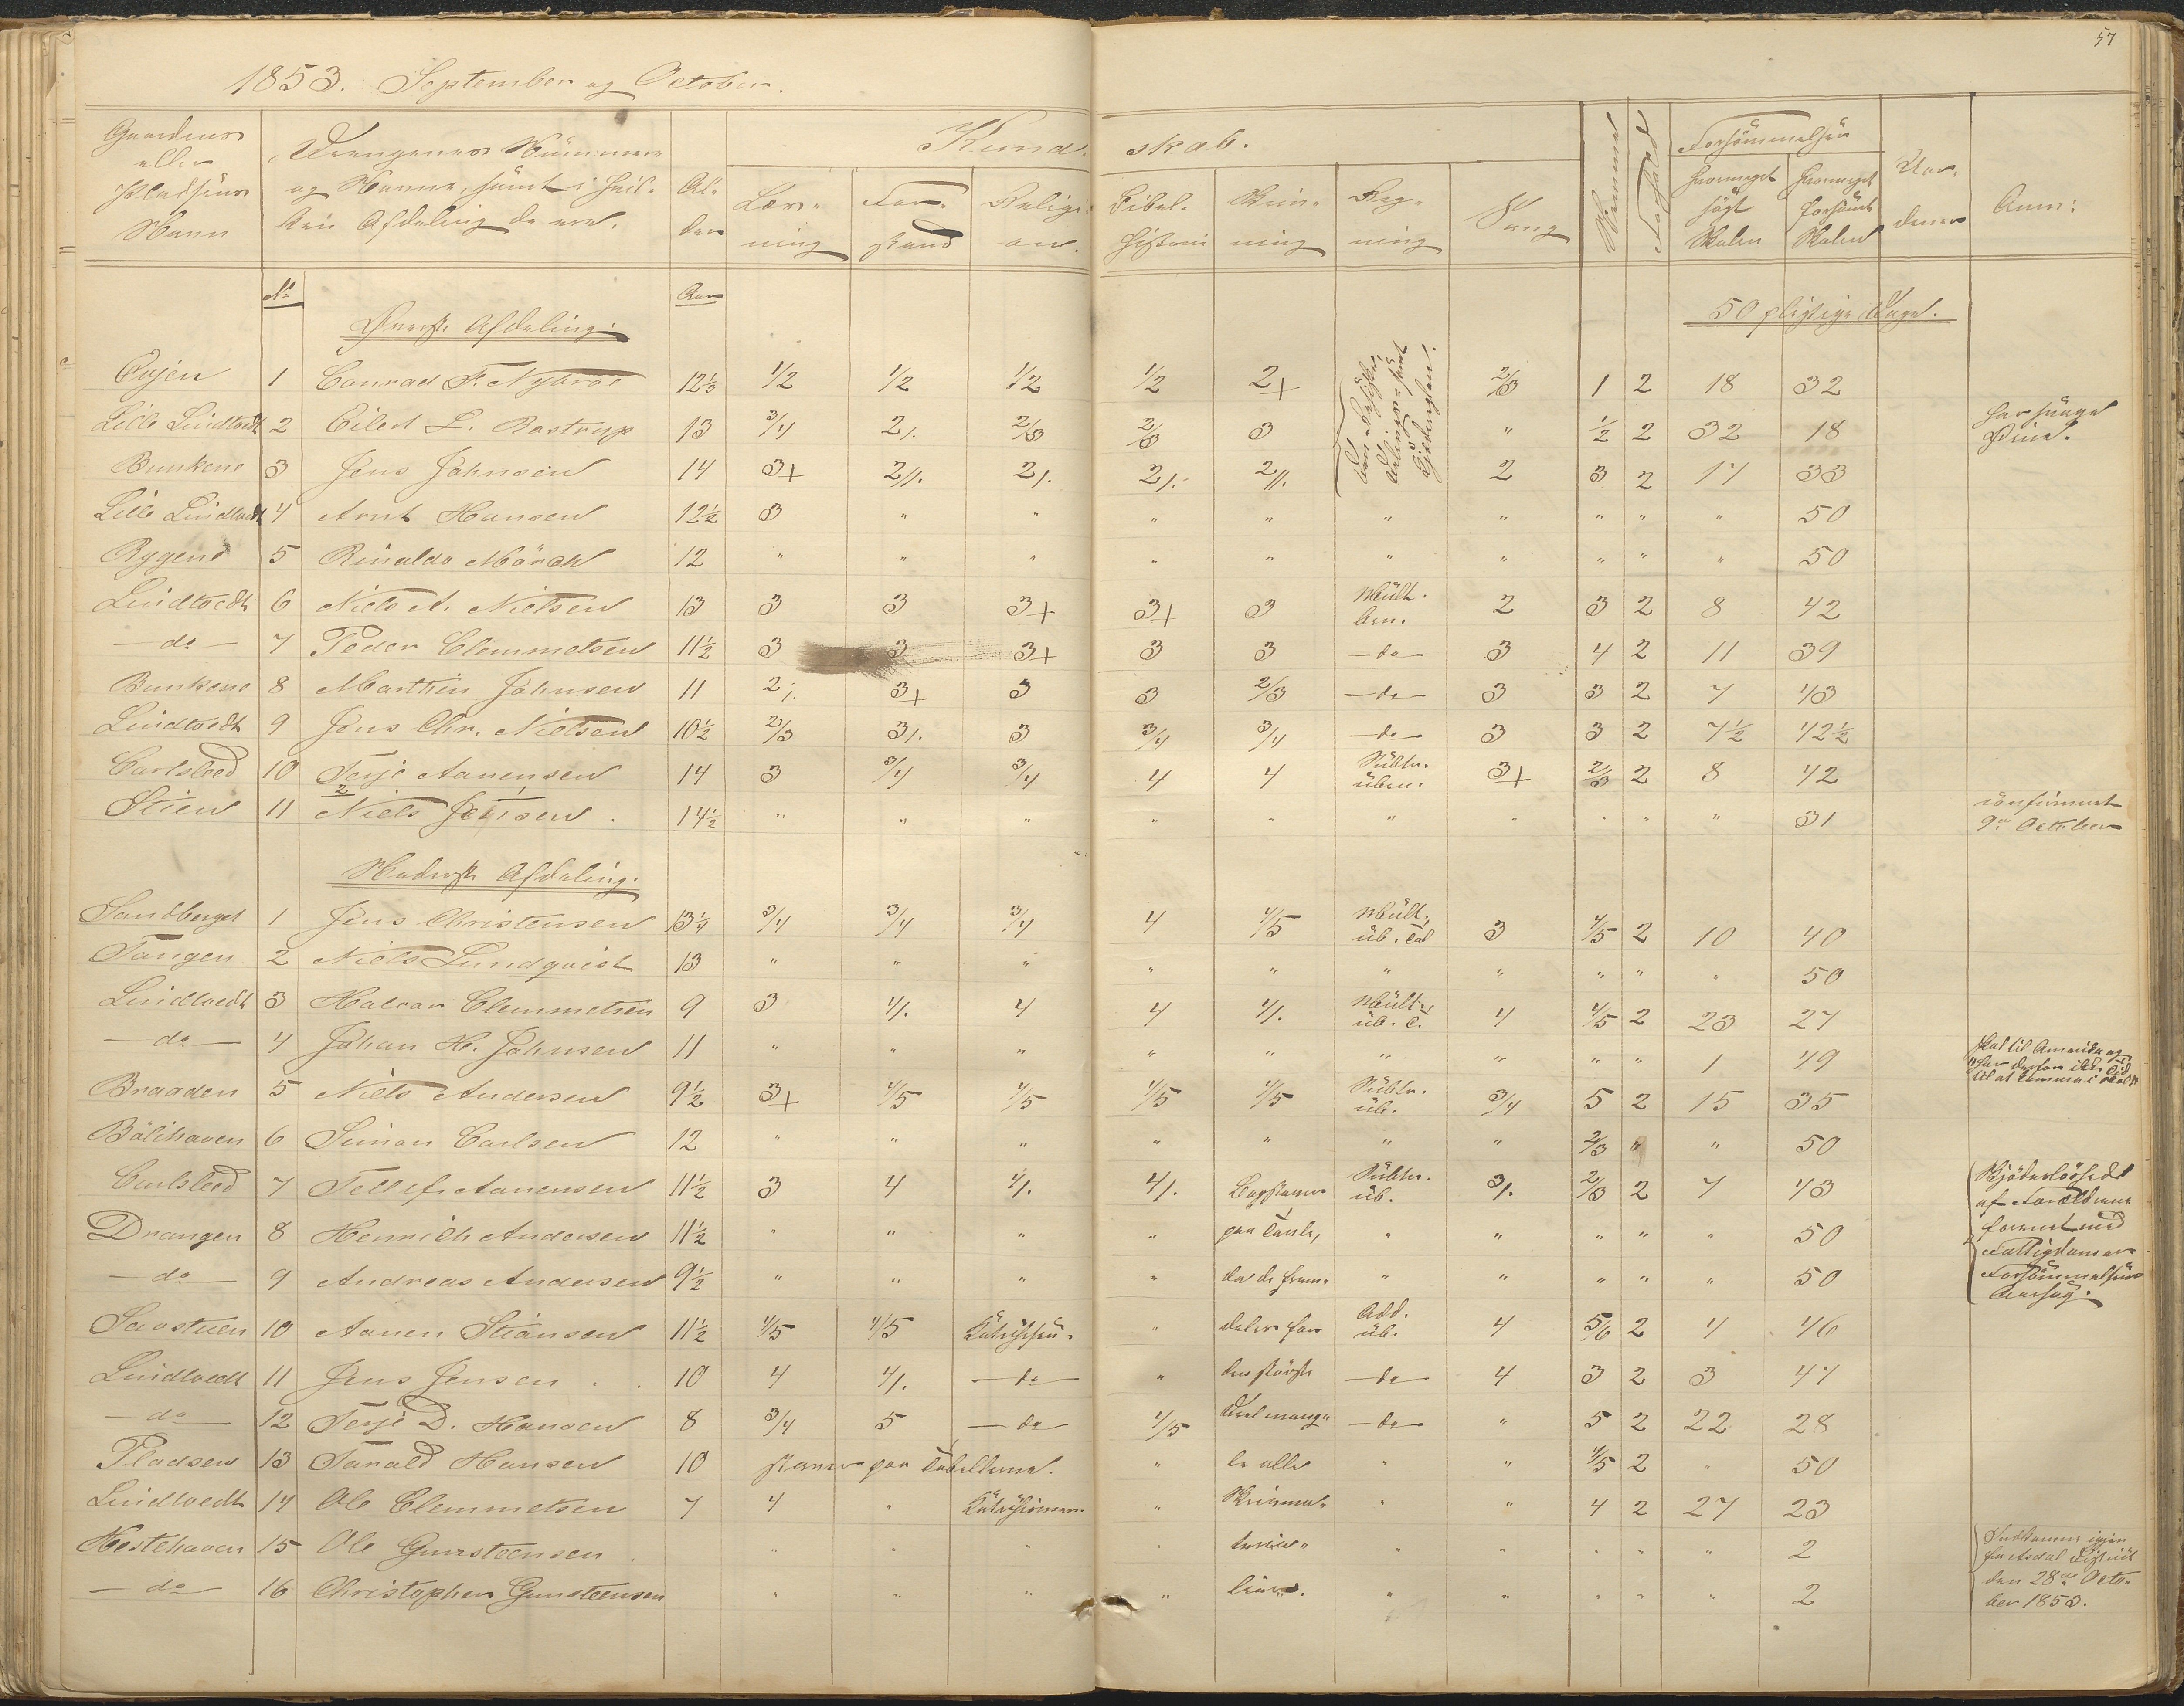 57
1853. September og October.
Gaardens eller Pladsens Navn | Drengenes Nummer og Navne, samt i hvilken Afdeling de ere. | Alder | Kundskab. | Nemme | Forhold | Forsömmelser | Anm:
Læsning | Forstand | Religion. | Bibelhistorie | Skrivning | Regning | Sang | hvormeget søgt Skolen | hvormeget forsömt Skolen
No | Øverste Afdeling. | Aar | 50 pligtige Dage.
1 Conrad F. Nybroe 12 1/3 1/2 1/2 1/2 1/2 2+ 2/3 1 2 18 32
Lille Lindtvedt 2 Eilert L. Rostrup 13 3/4 2/. 2/3 2/3 3 " 1/2 2 32 18
Bunkene 3 Jens Johnsen 14 3+ 2//. 2/. 2/. 2//. 2 3 2 17 33
Lille Lindtvedt 4 Arnt Hansen 12 1/2 3 " " " " " " " " " 50
Rygene 5 Rinaldo Mörch 12 " " " " " " " " " " 50
Lindtvedt 6 Niels A. Nielsen 13 3 3 3+ 3+ 3 2 3 2 8 42
— do — 7 Peder Clemmetsen 11 1/2 3 3 3+ 3 3 — do — 3 4 2 11 39
Bunkene 8 Marthin Johnsen 11 2/. 3+ 3 3 2/3 — do — 3 3 2 7 43
Lindtvedt 9 Jens Chr. Nielsen 10 1/2 2/3 3/. 3 3/4 3/4 — do — 3 3 2 7 1/2 42 1/2
Carlsled 10 Terje Aanensen 14 3 3/4 3/4 4 4 Subtr. üben. 3+ 2/3 2 8 42
Stien 11 Niels Jensen 14 1/2 " " " " " " " " " " 31 confirmert 9de October
Nederste Afdeling.
Sandberget 1 Jens Christensen 13 1/4 3/4 3/4 3/4 4 4/5 Mult. üb. 3 4/5 2 10 40
Tangen 2 Niels Lundqvist 13 " " " " " " " " " " 50
Lindtvedt 3 Halvor Clemmetsen 9 3 4/. 4 4 4/. Mult. üb. 4 4/5 2 23 27
— do — 4 Johan H. Johnsen 11 " " " " " " " " " 1 49 skal til Amerika og har derfor ikke Tid til at komme i Skole
Braaden 5 Niels Andersen 9 1/2 3+ 4/5 4/5 4/5 4/5 Subtr. üb. 3/4 5 2 15 35
Bölihaven 6 Simon Carlsen 12 " " " " " " " 2/3 " " 50
Carlsled 7 Tellef Aanensen 11 1/2 3 4 4/. 4/. Bogstaver Subtr. üb. 3/. 2/3 2 7 43
Drangen 8 Henrich Andersen 11 1/2 " " " " paa Tavle, " " " " " 50
— do — 9 Andreas Andersen 9 1/2 " " " " " " " " " 50
10 Aanen Stiansen 11 1/2 4/5 4/5 " Add. üb. 4 5/6 2 4 46
Lindtvedt 11 Jens Jensen 10 4 4/. — do — " den störste — do — 4 3 2 3 47
— do — 12 Terje D. Hansen 8 3/4 5 — do — 4/5 Deel mang- — do — " 5 2 22 28
Pladsen 13 Tarald Hansen 10 staver paa Tabellerne. " le alle " " 4/5 2 " 50
Lindtvedt 14 Ole Clemmetsen 7 4 " " Skrivma- " " 4 2 27 23
Hestehaven 15 Ole Gunsteensen " " " " " " " " " 2
— do — 16 Christopher Gunsteensen " " " " " " " " " 2
den 28de October 1853.